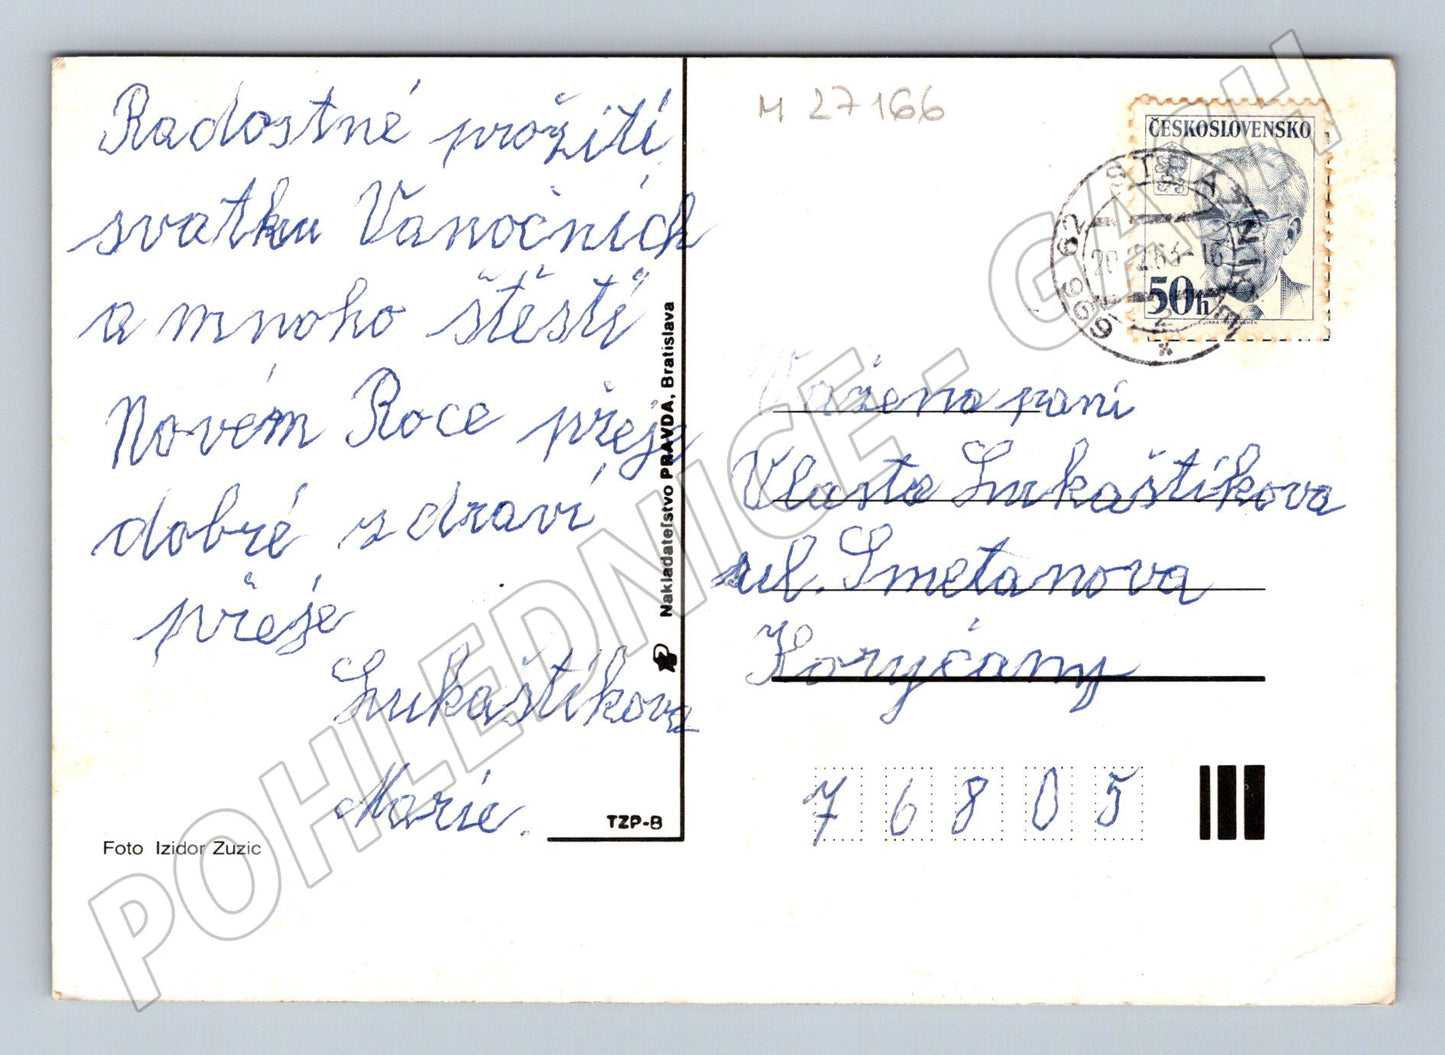 Radostné prožití
svatku Vanočních
a mnoho štěstí
Novém Roce přeje
dobré zdraví
přeje
Lukaštikova
Marie.
Foto Izidor Zuzic
TZP-B
Nakladateľstvo PRAVDA, Bratislava
M 27166
ČESKOSLOVENSKO
50h
696 62 STRÁŽNICE
Važena pani
Vlasta Lukaštíkova
ul. Smetanova
Koryčany
76805
POHLEDNICE - GACH